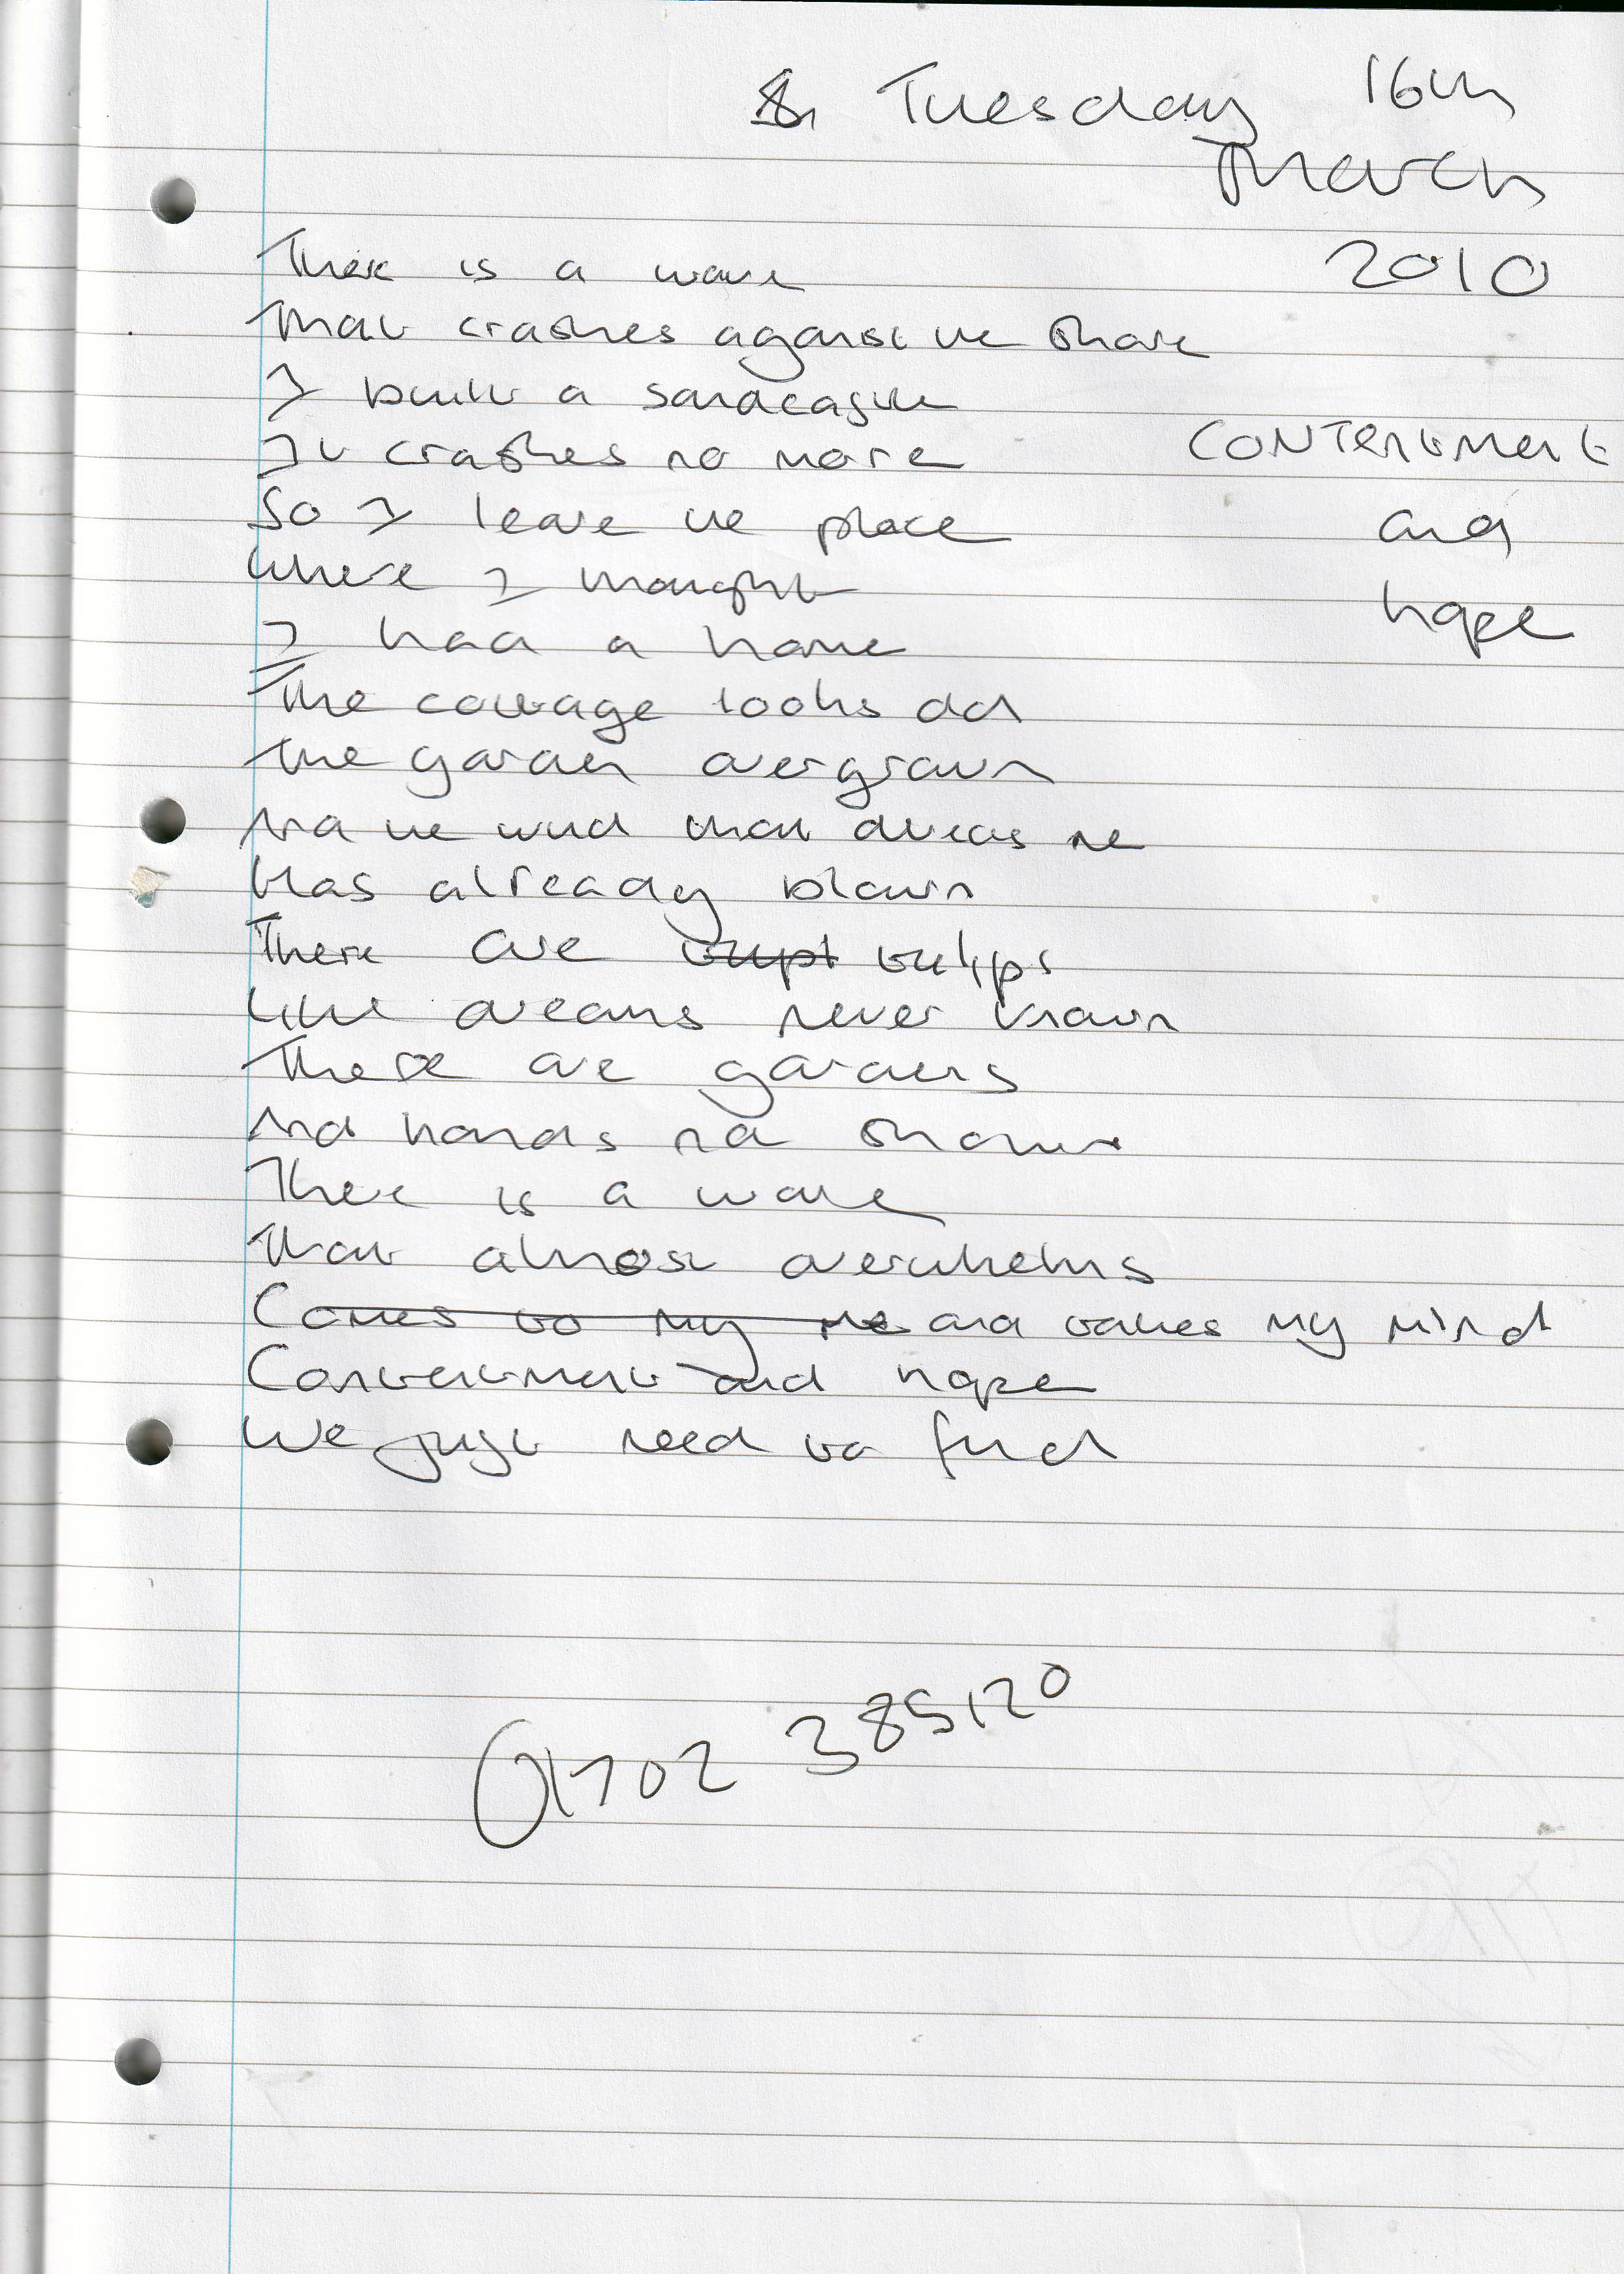 Tuesday 16th
March
2010
There is a wave
That crashes against the shore
I built a sandcastle
It crashes no more
CONTENTMENT
and
hope
So I leave the place
Where I thought
I had a home
The cottage looks old
The garden overgrown
And the wind that drives me
Has already blown
There are tulips
Like dreams never known
There are gardens
And hands not shown
There is a wave
That almost overwhelms
Comes to my me and takes my mind
Contentment and hope
We just need to find
01702 385120